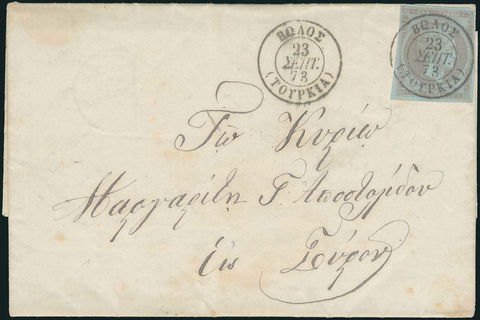 ΒΩΛΟΣ
23
ΣΕΠΤ.
73
(ΤΟΥΡΚΙΑ)
ΒΩΛΟΣ
23
ΣΕΠΤ.
73
(ΤΟΥΡΚΙΑ)
Τῷ Κυρίῳ
Μαργαρίτη Γ. Αποστολίδου
Εἰς Σύρον